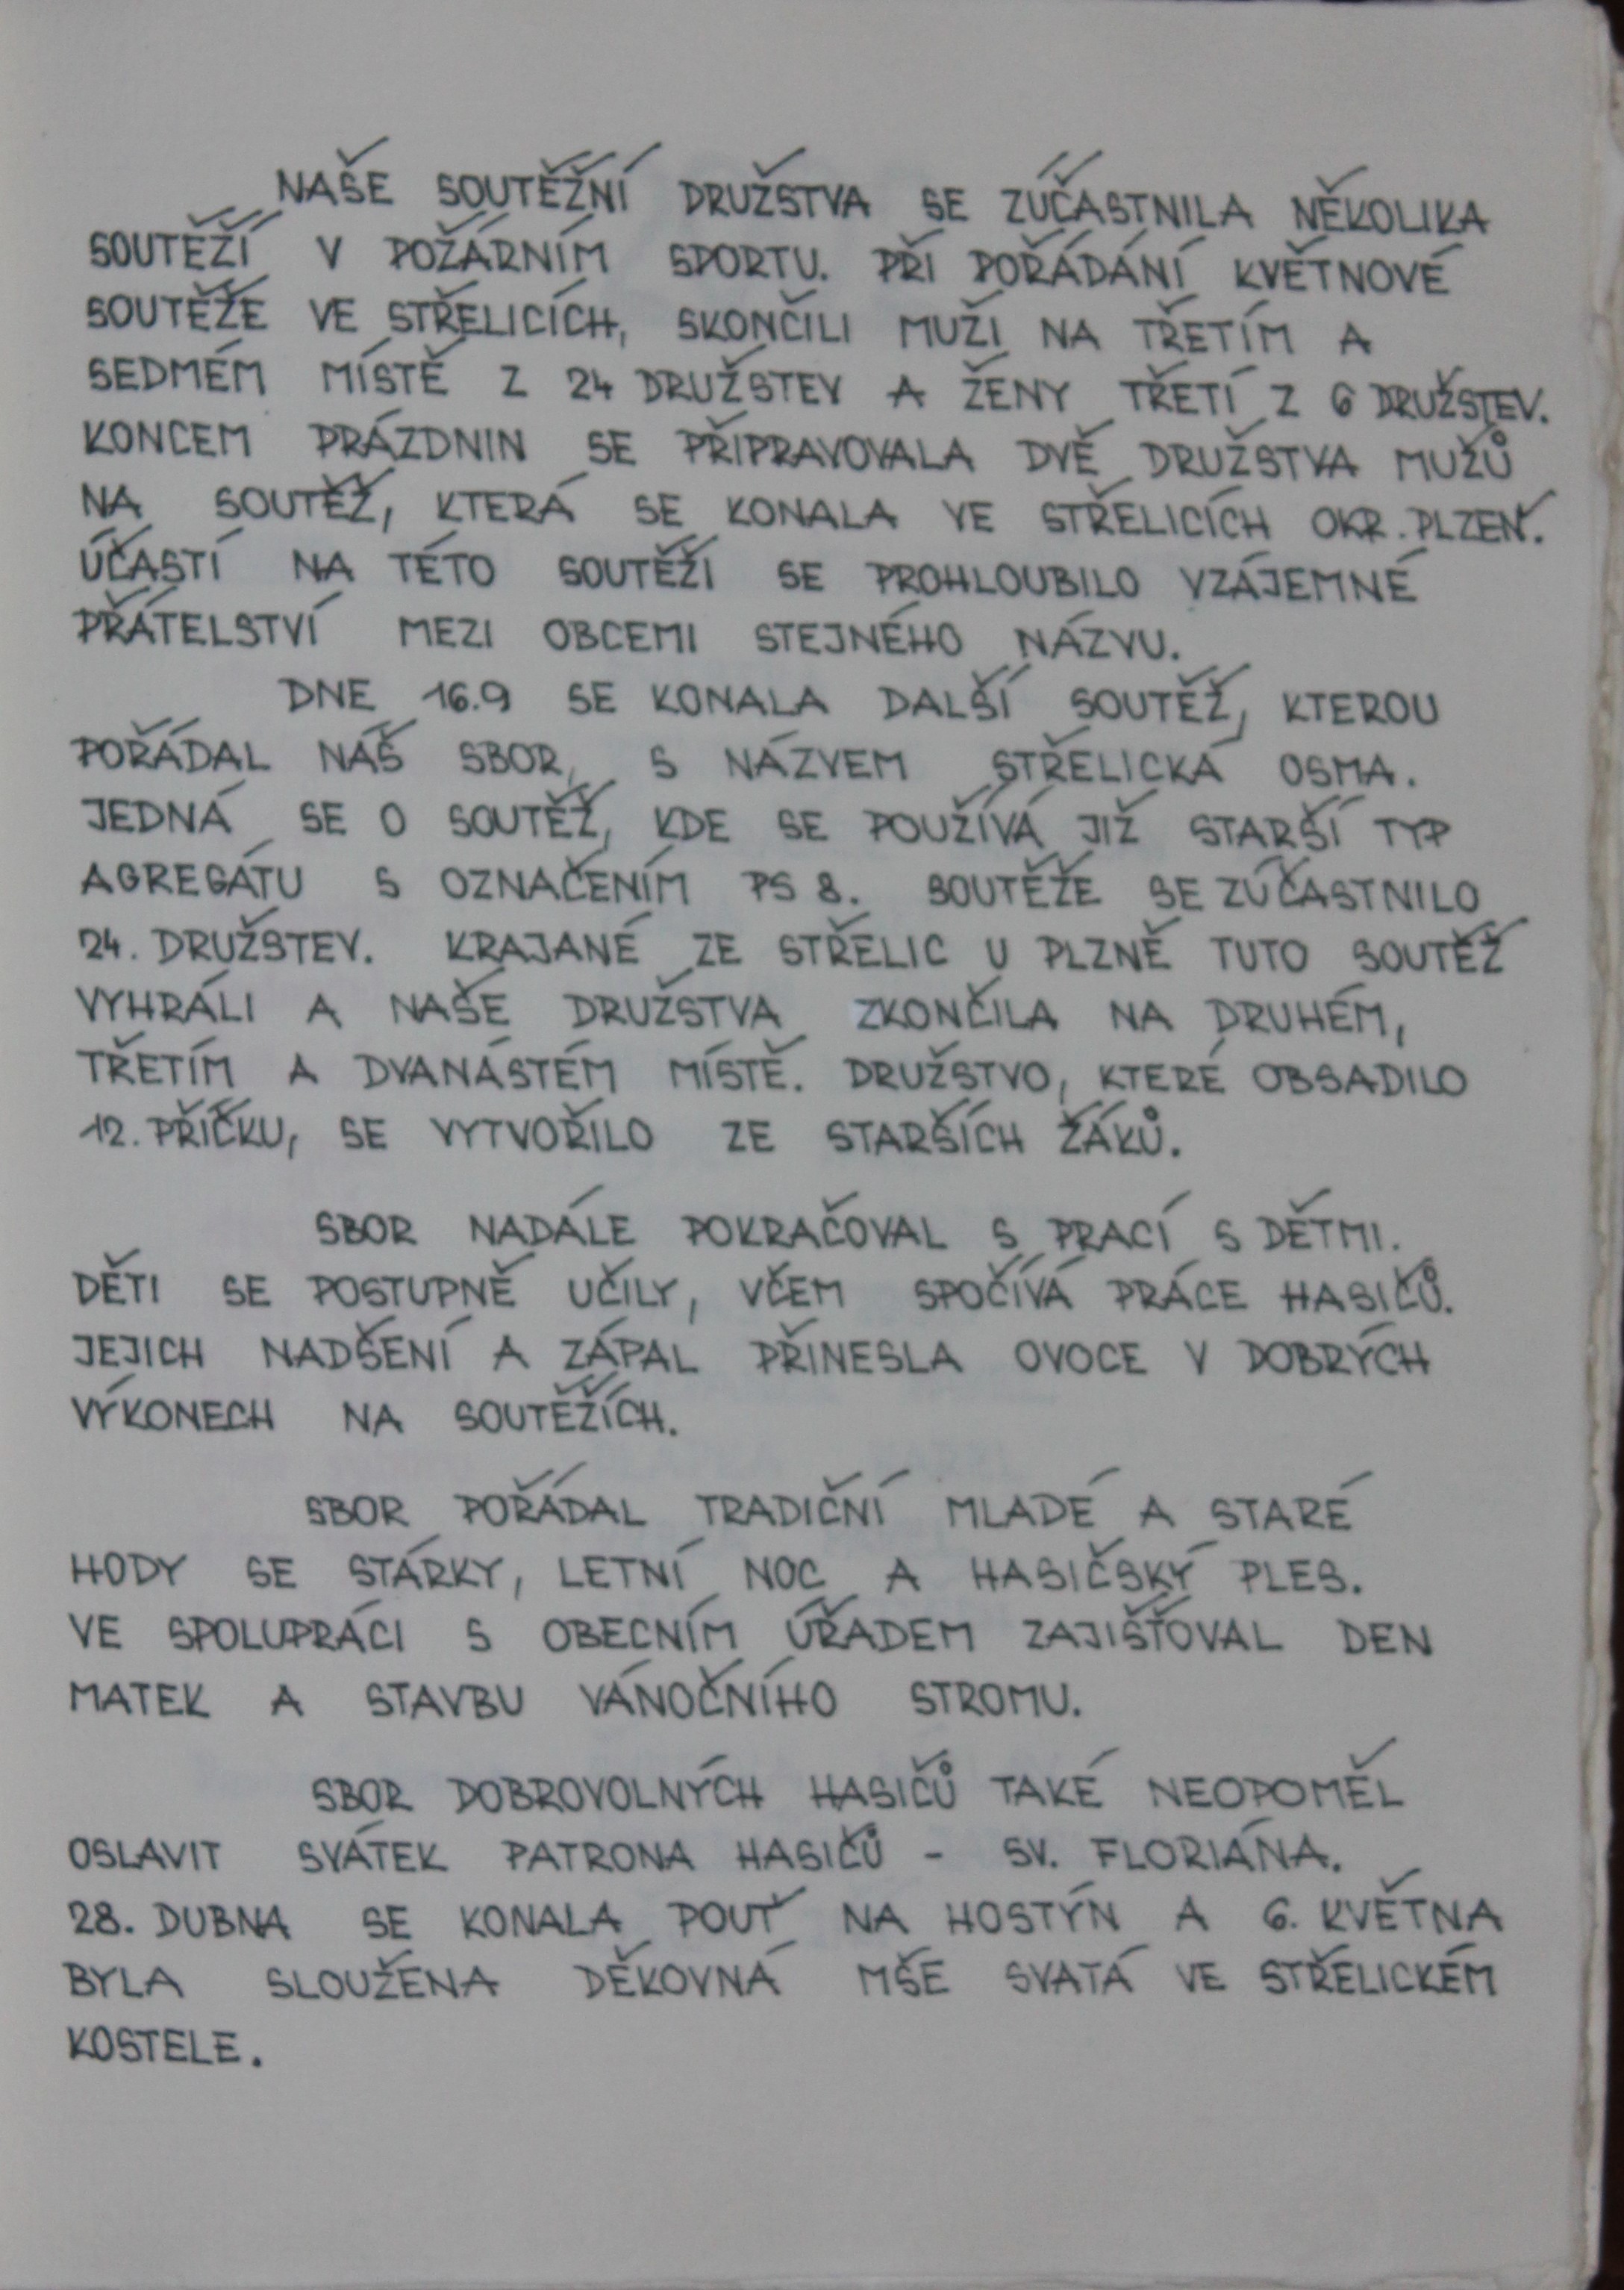 NAŠE SOUTĚŽNÍ DRUŽSTVA SE ZÚČASTNILA NĚKOLIKA
SOUTĚŽÍ V POŽÁRNÍM SPORTU. PŘI POŘÁDÁNÍ KVĚTNOVÉ
SOUTĚŽE VE STŘELICÍCH, SKONČILI MUŽI NA TŘETÍM A
SEDMÉM MÍSTĚ Z 24 DRUŽSTEV A ŽENY TŘETÍ Z 6 DRUŽSTEV.
KONCEM PRÁZDNIN SE PŘIPRAVOVALA DVĚ DRUŽSTVA MUŽŮ
NA SOUTĚŽ, KTERÁ SE KONALA VE STŘELICÍCH OKR. PLZEŇ.
ÚČASTÍ NA TÉTO SOUTĚŽI SE PROHLOUBILO VZÁJEMNÉ
PŘÁTELSTVÍ MEZI OBCEMI STEJNÉHO NÁZVU.
DNE 16.9 SE KONALA DALŠÍ SOUTĚŽ, KTEROU
POŘÁDAL NÁŠ SBOR, S NÁZVEM STŘELICKÁ OSMA.
JEDNÁ SE O SOUTĚŽ, KDE SE POUŽÍVÁ JIŽ STARŠÍ TYP
AGREGÁTU S OZNAČENÍM PS 8. SOUTĚŽE SE ZÚČASTNILO
24. DRUŽSTEV. KRAJANÉ ZE STŘELIC U PLZNĚ TUTO SOUTĚŽ
VYHRÁLI A NAŠE DRUŽSTVA ZKONČILA NA DRUHÉM,
TŘETÍM A DVANÁSTÉM MÍSTĚ. DRUŽSTVO, KTERÉ OBSADILO
12. PŘÍČKU, SE VYTVOŘILO ZE STARŠÍCH ŽÁKŮ.
SBOR NADÁLE POKRAČOVAL S PRACÍ S DĚTMI.
DĚTI SE POSTUPNĚ UČILY, VČEM SPOČÍVÁ PRÁCE HASIČŮ.
JEJICH NADŠENÍ A ZÁPAL PŘINESLA OVOCE V DOBRÝCH
VÝKONECH NA SOUTĚŽÍCH.
SBOR POŘÁDAL TRADIČNÍ MLADÉ A STARÉ
HODY SE STÁRKY, LETNÍ NOC A HASIČSKÝ PLES.
VE SPOLUPRÁCI S OBECNÍM ÚŘADEM ZAJIŠŤOVAL DEN
MATEK A STAVBU VÁNOČNÍHO STROMU.
SBOR DOBROVOLNÝCH HASIČŮ TAKÉ NEOPOMĚL
OSLAVIT SVÁTEK PATRONA HASIČŮ - SV. FLORIÁNA.
28. DUBNA SE KONALA POUŤ NA HOSTÝN A 6. KVĚTNA
BYLA SLOUŽENA DĚKOVNÁ MŠE SVATÁ VE STŘELICKÉM
KOSTELE.